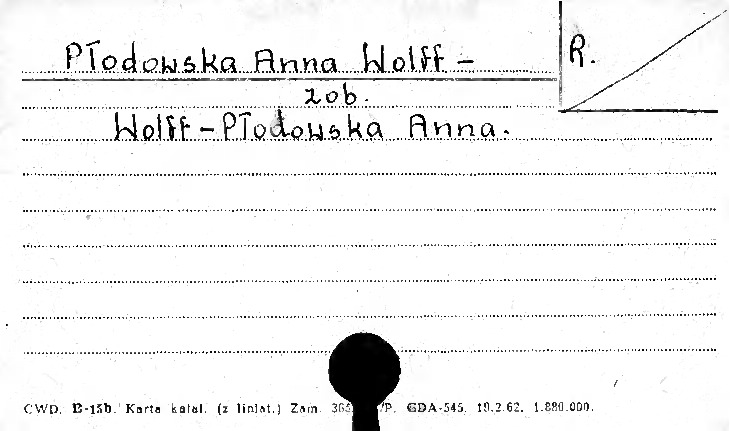 Płodowska Anna Wolff -
R.
zob.
Wolff - Płodowska Anna.
CWD. B-15b. Karta katal. (z liniat.) Zam. /P. GDA-545. 19.2.62. 1.880.000.